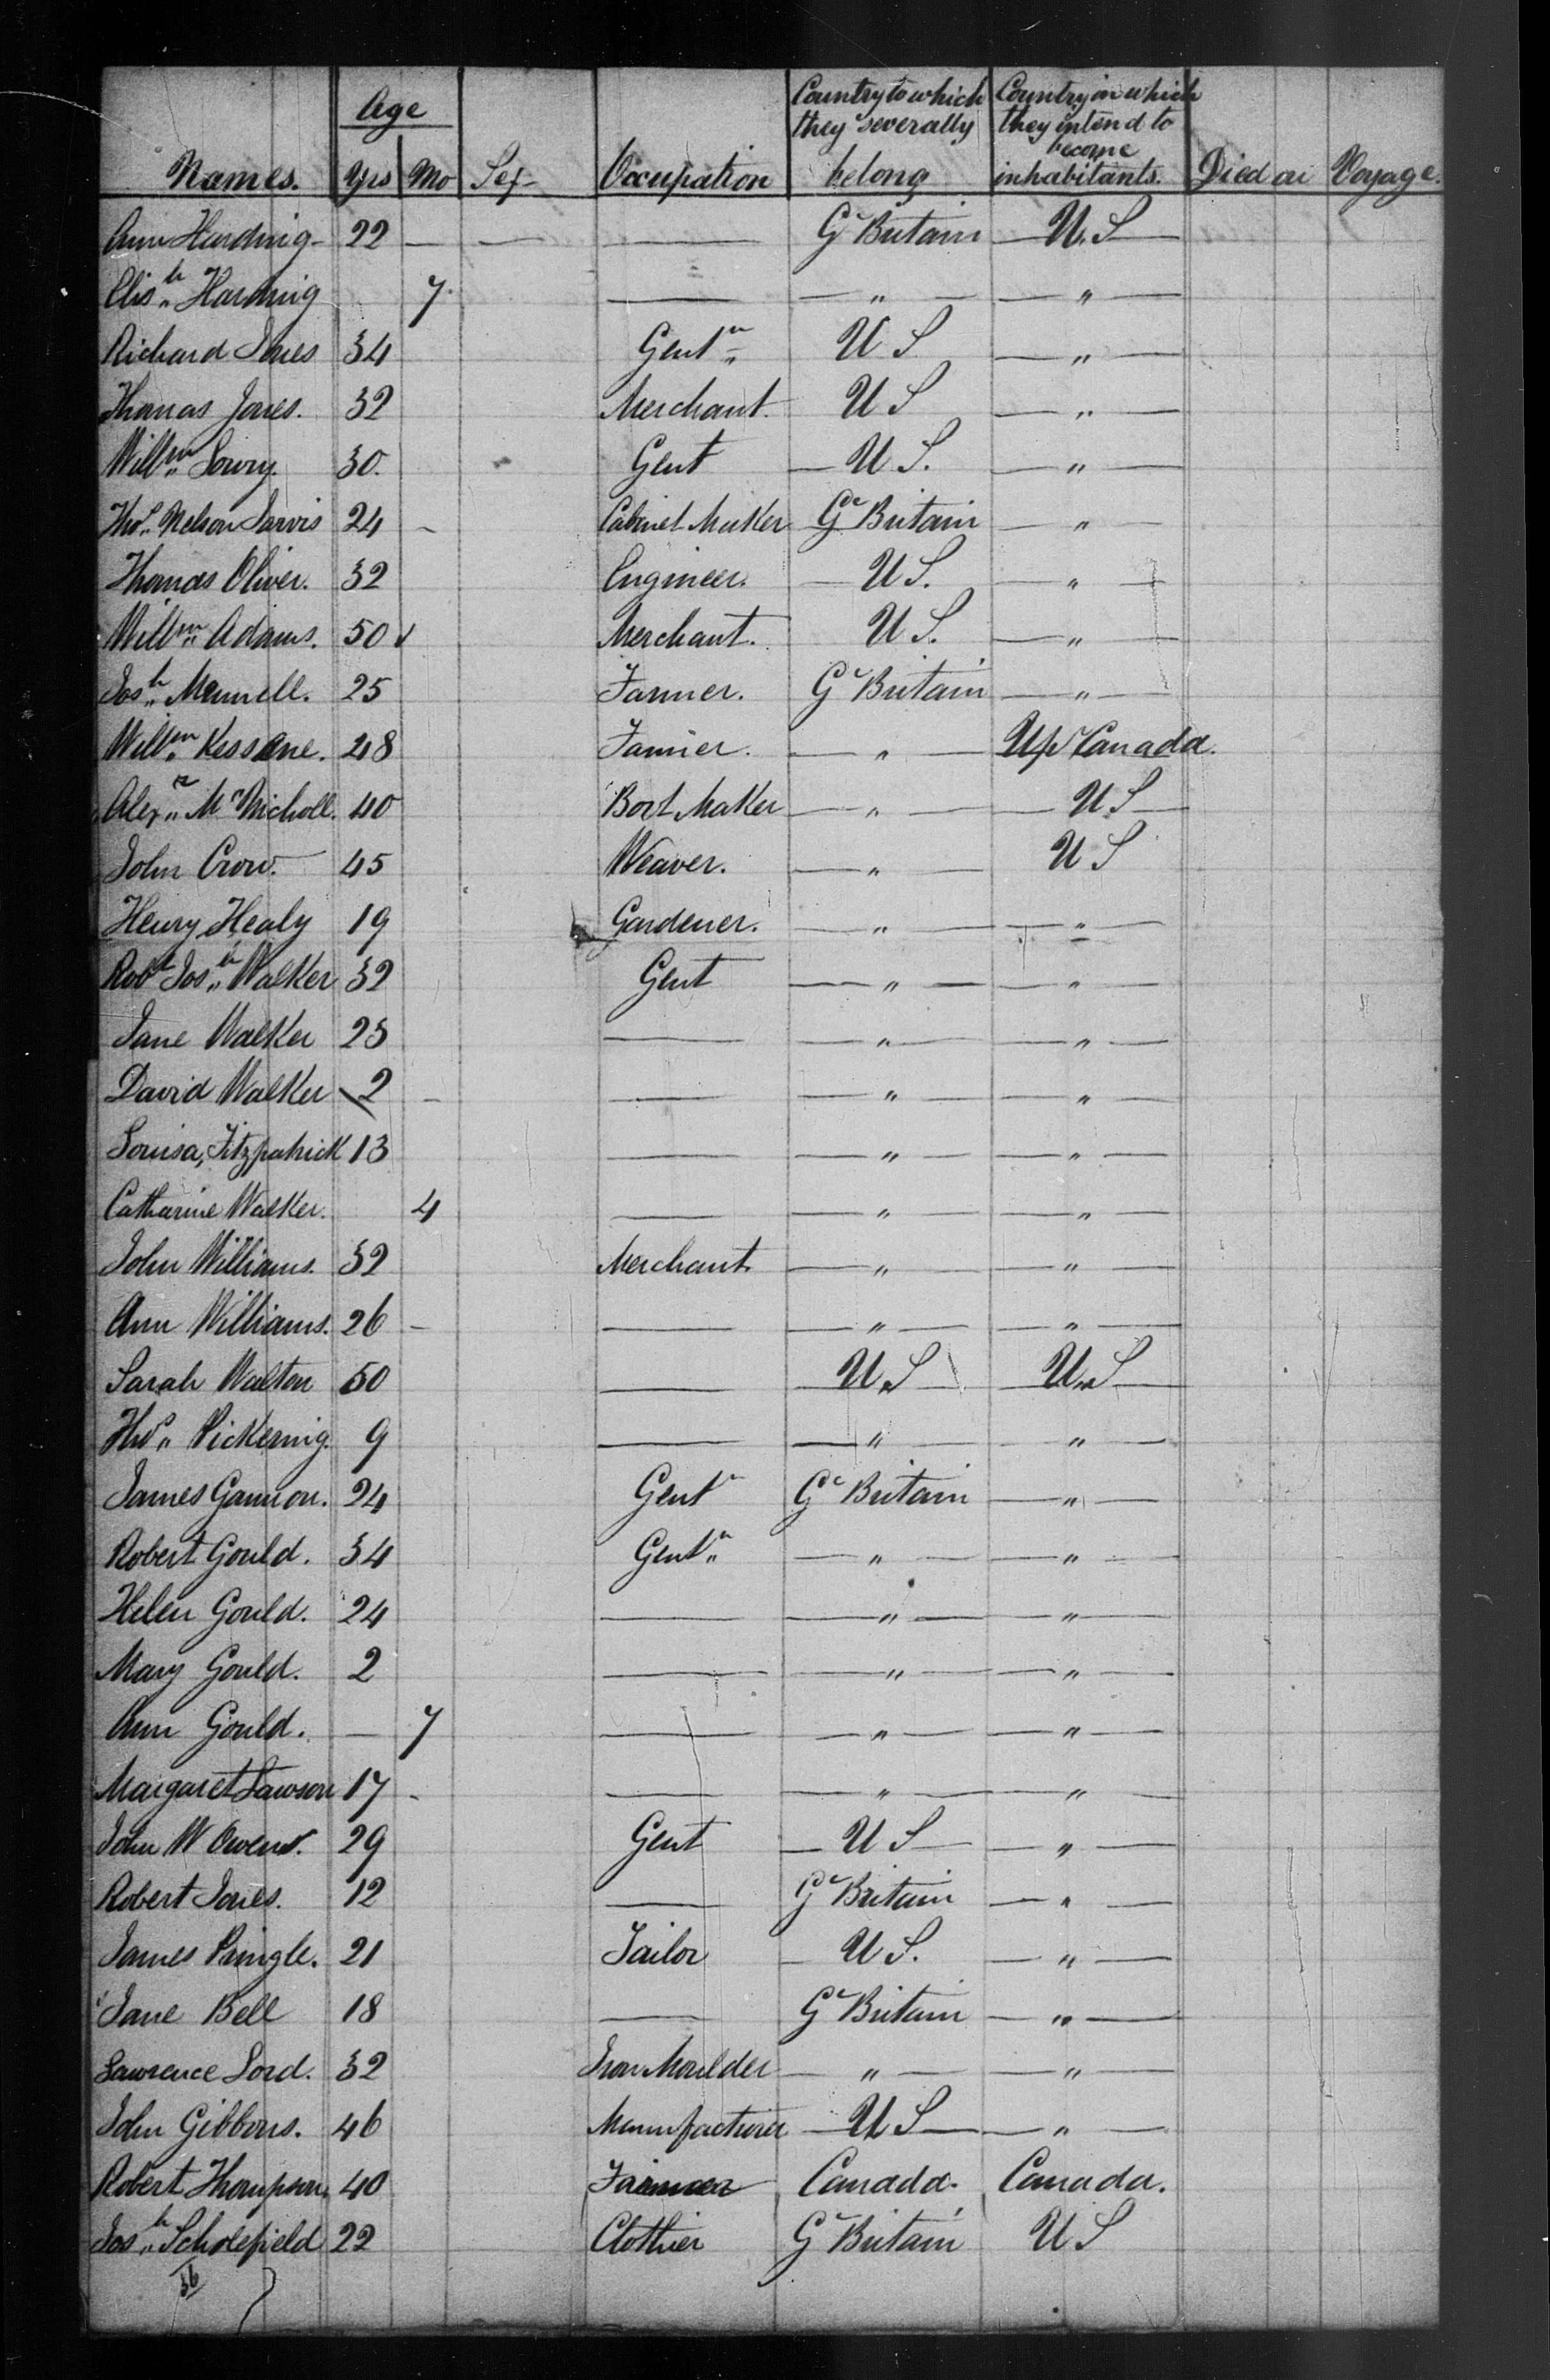 Names. Age Yrs Mo Sex Occupation Country to which they severally belong Country in which they intend to become inhabitants. Died on Voyage.
Ann Harding - 22 — — — Gt Britain U.S
Elisth Harding 7 — " "
Richard Jones 34 Gentn U S "
Thomas Jones. 32 Merchant. U S "
Willm Lowry. 30. Gent U S. "
Thos Nelson Jarvis 24 - Cabinet Maker Gt Britain "
Thomas Oliver. 32 Engineer. U S. "
Willm Adams. 50 Merchant. U S. "
Josh Meunell. 25 Farmer. Gt Britain "
Willm Kessane. 28 Farmer. " Upr Canada.
Alexr McNicholl. 40 Boot Maker " U S
John Crow. 45 Weaver. " U S
Henry Healy 19 Gardener. " "
Robt Josh Walker 32 Gent " "
Jane Walker 25 — " "
David Walker 2 - — " "
Louisa, Fitzpatrick 13 — " "
Catharine Walker. 4 — " "
John Williams. 32 Merchant. " "
Ann Williams. 26 - — " "
Sarah Walton 50 — U S U S
Thos Pickering. 9 — " "
James Gannon. 24 Gentn Gt Britain "
Robert Gould. 34 Gentn " "
Helen Gould. 24 — " "
Mary Gould. 2 — " "
Ann Gould. — 7 — " "
Margaret Lawson 17 - — " "
John W Owens. 29 Gent U S "
Robert Jones. 12 — Gt Britain "
James Pringle. 21 Tailor U S. "
Jane Bell 18 — Gt Britain "
Lawrence Lord. 32 Iron Moulder " "
John Gibbons. 46 Manufacturer U S "
Robert Thompson. 40 Farmer Canada. Canada.
Josh Scholefield 22 Clothier Gt Britain U S
36